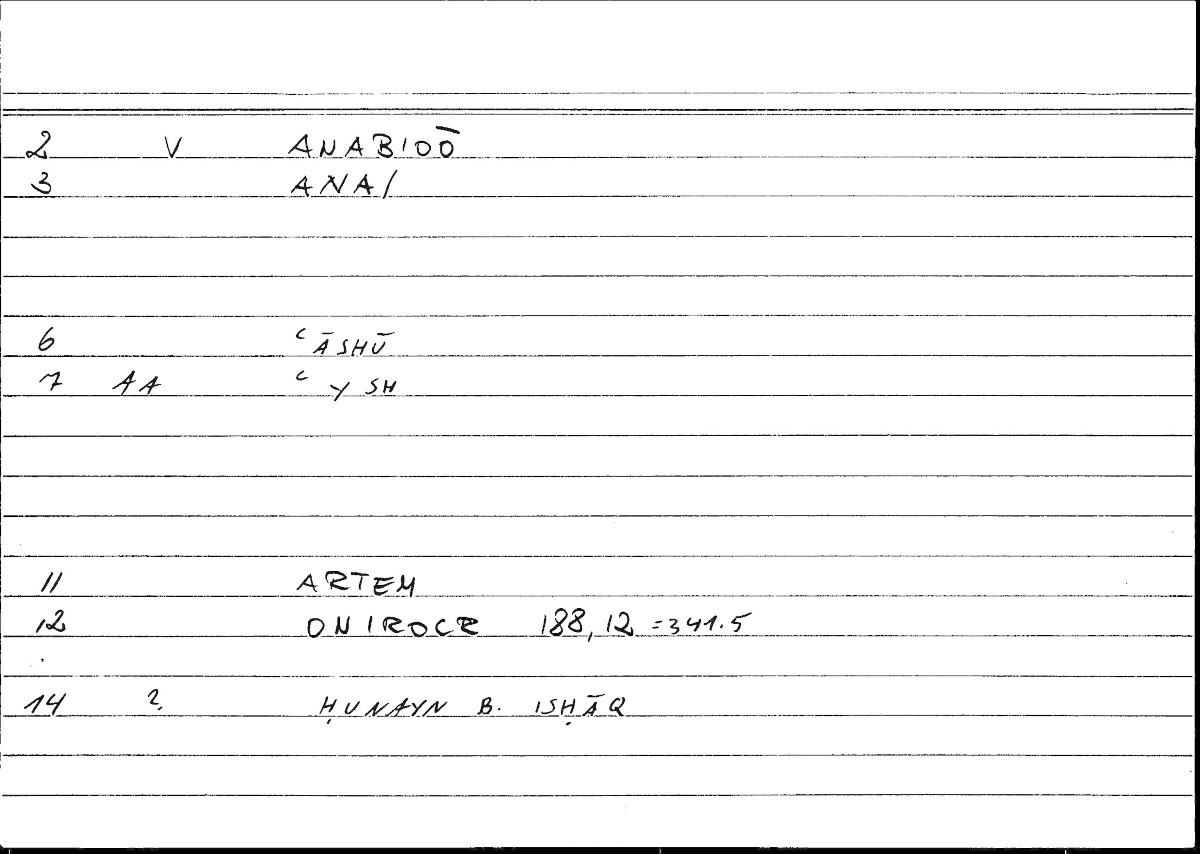 2 V ANABIOŌ
3 ANA/
6 ʿĀSHŪ
7 AA ʿYSH
11 ARTEM
12 ONIROCR 188,12 =341.5
14 ? ḤUNAYN B. ISḤĀQ